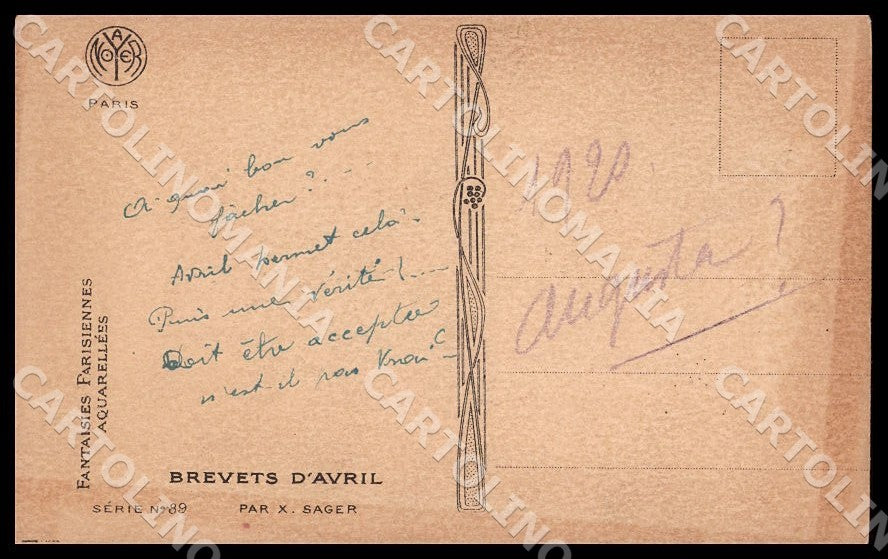 A. NOYER
PARIS
A quoi bon vous
fâcher?....
Avril permet cela.
Puis une vérité!....
Doit être acceptée
n'est-il pas vrai?
1920.
Augusta?
FANTAISIES PARISIENNES
AQUARELLÉES
BREVETS D'AVRIL
SÉRIE No 89
PAR X. SAGER
CARTOLINOMANIA